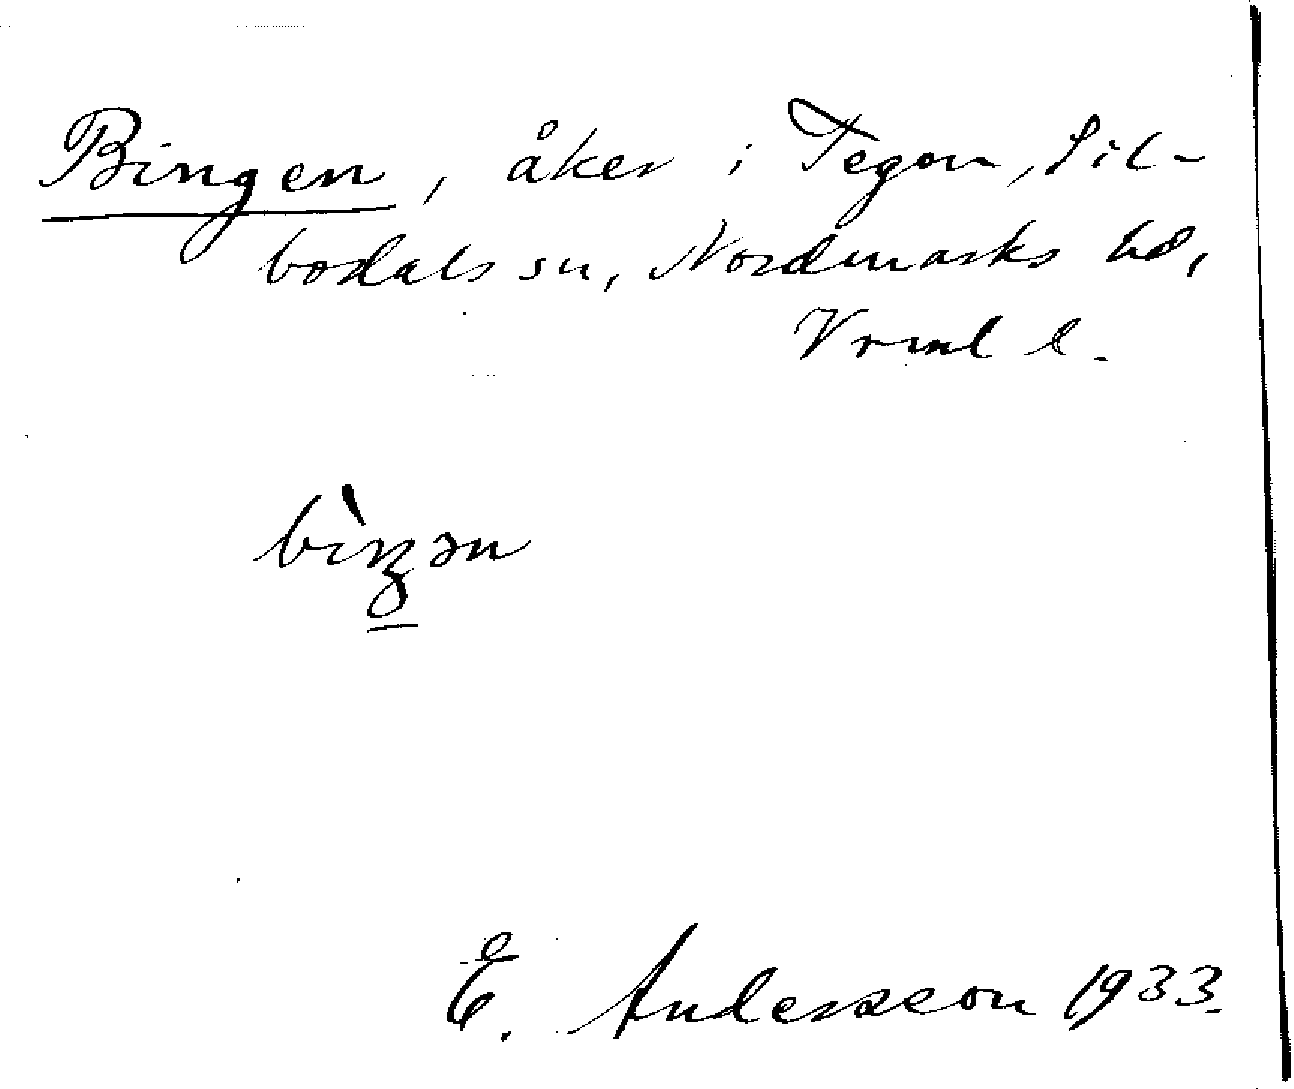 Bingen, åker i Tegen, Sil-
bodals sn, Nordmarks hd,
Vrml l.
bìŋən
E. Andersson 1933.